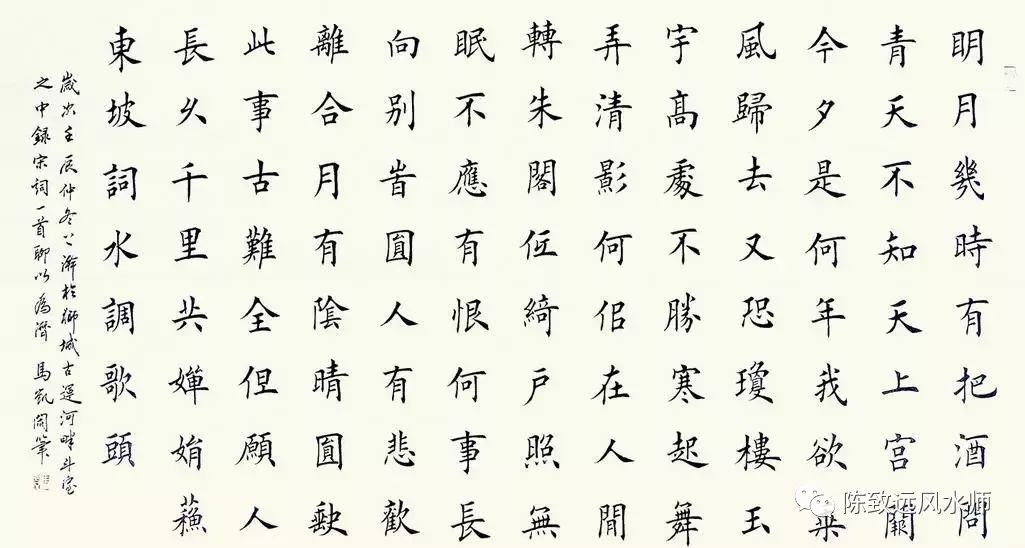 明月幾時有把酒問
青天不知天上宮闕
今夕是何年我欲乗
風歸去又恐瓊樓玉
宇高處不勝寒起舞
弄清影何佀在人間
轉朱閣低綺戶照無
眠不應有恨何事長
向别旹圓人有悲歡
離合月有陰晴圓缺
此事古難全但願人
長久千里共嬋娟蘓
東坡詞水調歌頭
歲次壬辰仲冬澣於城古運河畔斗室
之中録宋詞一首聊以為馬凱筆
陈致远风水师